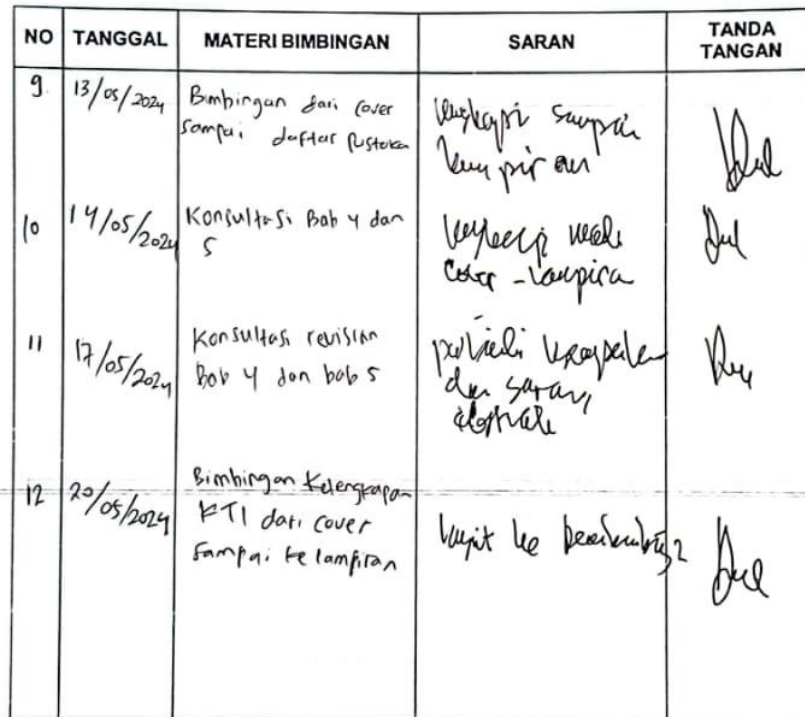 NO TANGGAL MATERI BIMBINGAN SARAN TANDA TANGAN
9. 13/05/2024 Bimbingan dari cover
sampai daftar pustaka
lengkapi sampai
lampiran
10 14/05/2024 Konsultasi Bab 4 dan
5
cover - lampiran
11 17/05/2024 Konsultasi revisian
Bab 4 dan bab 5
perbaiki kesimpulan
dan saran,
abstrak
12 20/05/2024 Bimbingan Kelengkapan
KTI dari cover
sampai ke lampiran
lanjut ke pembimbing 2